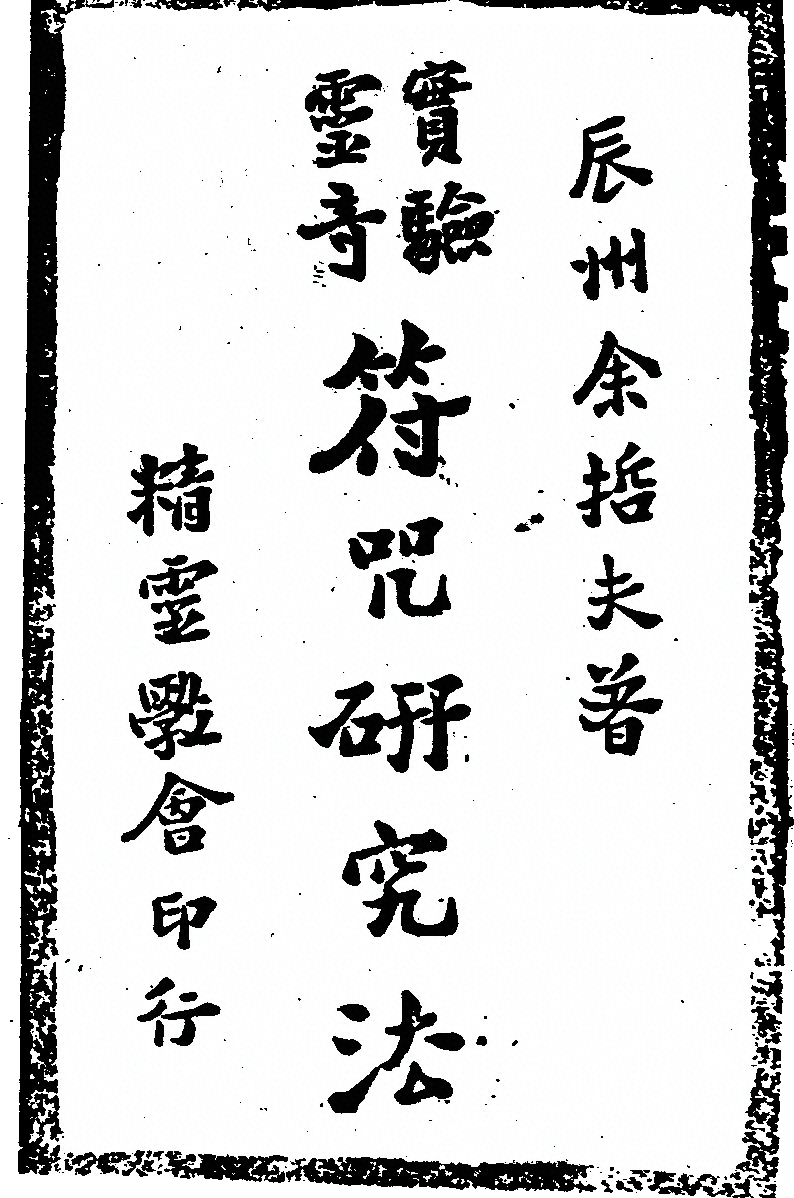 辰州余哲夫著
實驗
靈奇
符咒研究法
精靈學會印行